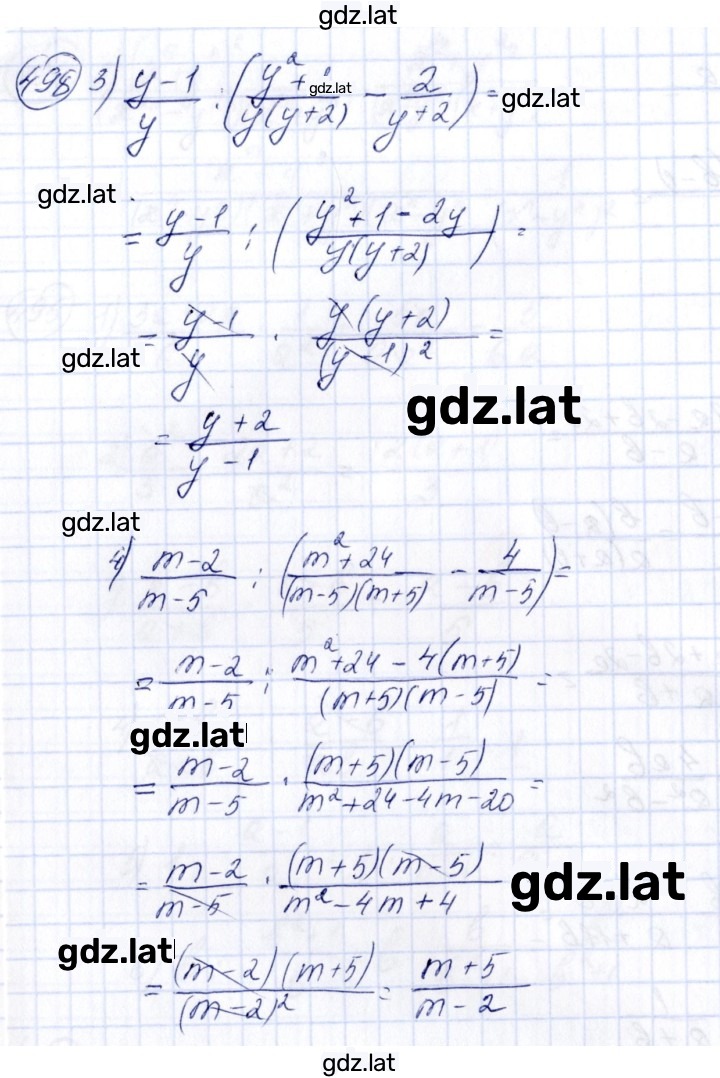 gdz.lat
498 3) \frac{y-1}{y} : (\frac{y^2+}{y(y+2)} - \frac{2}{y+2}) = gdz.lat
gdz.lat
gdz.lat
= \frac{y-1}{y} : (\frac{y^2+1-2y}{y(y+2)}) =
= \frac{y-1}{y} · \frac{y(y+2)}{(y-1)^2} =
gdz.lat
gdz.lat
= \frac{y+2}{y-1}
gdz.lat
4) \frac{m-2}{m-5} : (\frac{m^2+24}{(m-5)(m+5)} - \frac{4}{m-5}) =
= \frac{m-2}{m-5} : \frac{m^2+24-4(m+5)}{(m+5)(m-5)} =
gdz.lat
= \frac{m-2}{m-5} · \frac{(m+5)(m-5)}{m^2+24-4m-20} =
= \frac{m-2}{m-5} · \frac{(m+5)(m-5)}{m^2-4m+4} gdz.lat
gdz.lat
= \frac{(m-2)(m+5)}{(m-2)^2} = \frac{m+5}{m-2}
gdz.lat